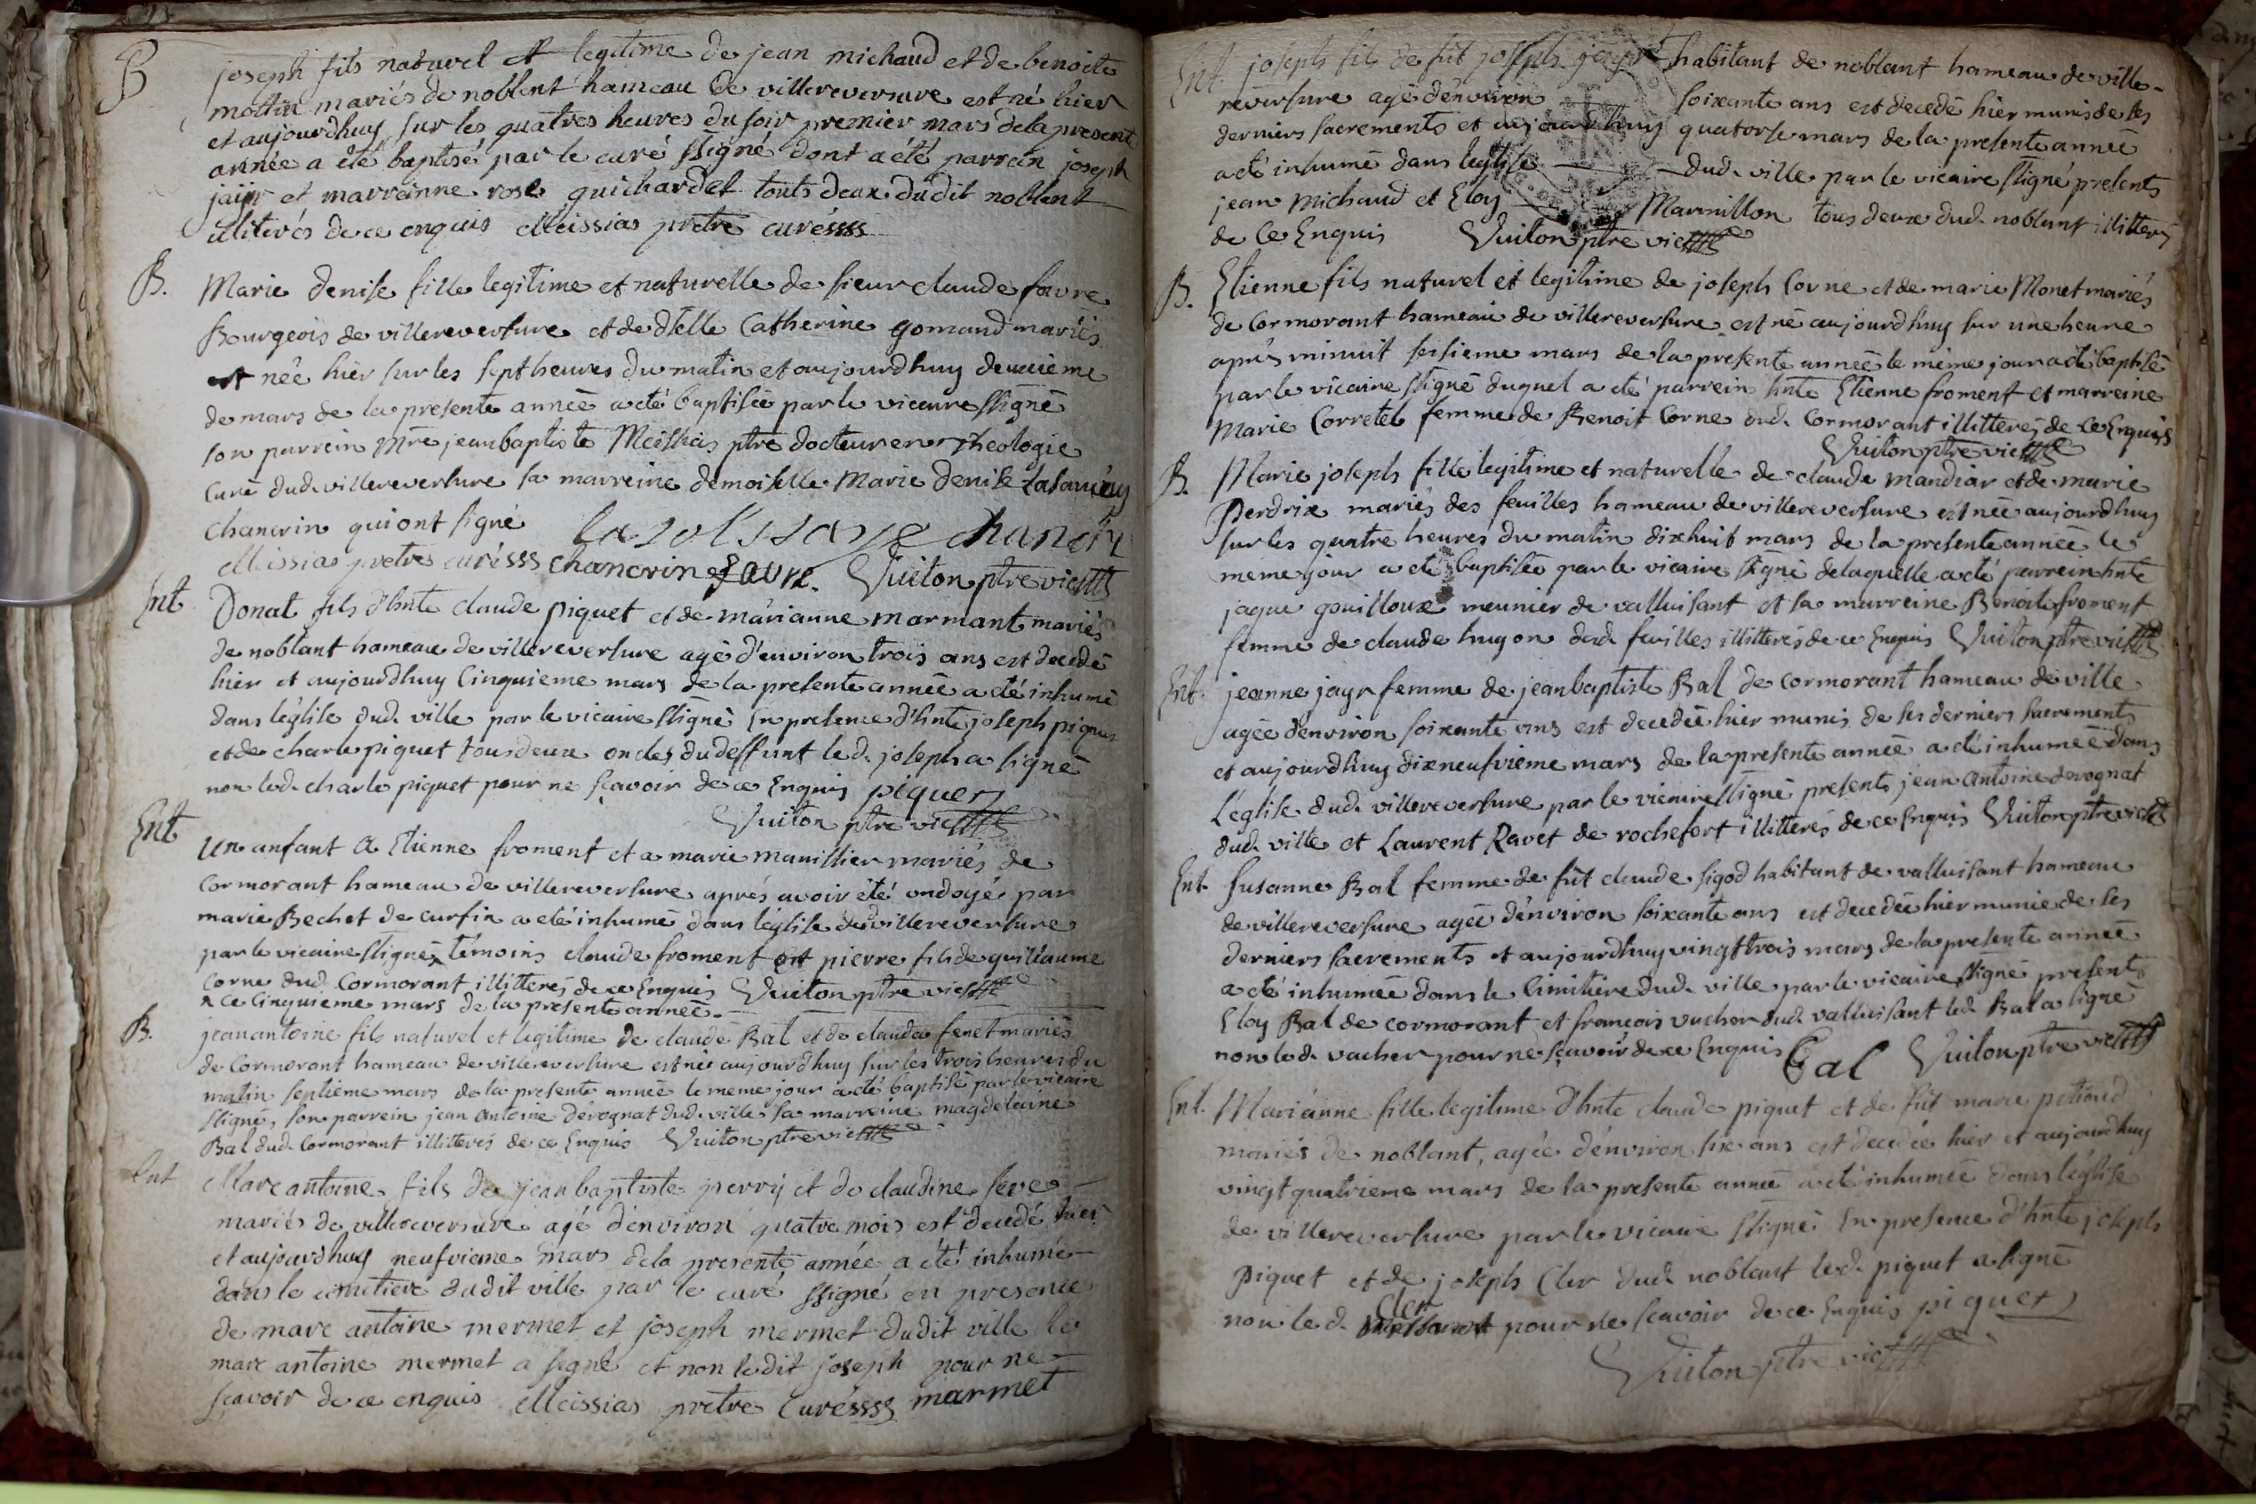 B
joseph fils naturel et legitime de jean michaud et de benoite
mottin mariés de noblent hameau de villereversure est né hier
et aujourdhuy sur les quatres heures du soir premier mars dela presente
année a été baptisé par le curé ssigné dont a été parrein joseph
jaijr et marreinne rose guichardet touts deux dudit noblent
illiterés de ce enquis Meissias pretre curéssss
B.
Marie denise fille legitime et naturelle de sieur claude favre
Bourgeois de villereversure et de dlle Catherine gomand mariés
est née hier sur les sept heures du matin et aujourdhuy deuxieme
de mars de la presente année a eté baptisée par le vicaire ssigné
son parrein Mre jean baptiste Meissias ptre docteur en Theologie
Curé dud. villereversure sa marreine demoiselle Marie denise
Chancrin qui ont signé
Meissias pretre curésss chancrin favre. Vuiton ptre vic
Ent
Donat fils d'hnte claude piquet et de marianne marmant mariés
de noblant hameau de villereversure agé d'environ trois ans est decedé
hier et aujourdhuy Cinquieme mars de la presente année a eté inhumé
dans l'église dud. ville par le vicaire ssigné En presence d'hnte joseph piquet
et de charle piquet tous deux oncles du deffunt led. joseph a signé
non led. charle piquet pour ne sçavoir de ce Enquis piquet
Vuiton ptre vic
Ent
Un anfant a Etienne froment et a marie manillier mariés de
Cormorant hameau de villereversure aprés avoir été ondoyé par
marie Bechet de curfin a eté inhumé dans l'église dud villereversure
par le vicaire ssigné, témoins claude froment et pierre fils de guillaume
Corne dud. Cormorant illitterés de ce Enquis Vuiton ptre vic
x Ce Cinquieme mars de la presente année.
B.
jean antoine fils naturel et legitime de claude Bal et de claudea fenet mariés
de Cormorant hameau de villereversure est né aujourdhuy sur les trois heures du
matin septieme mars de la presente année le meme jour a eté baptisé par le vicaire
ssigné, son parrein jean antoine derognat dud. ville sa marreine magdeleine
Bal dud. Cormorant illitterés de ce Enquis Vuiton ptre vic
Ent
Marc antoine fils de jean baptiste perrij et de claudine
mariés de villereversure agé d'environ quatre mois est decedé hier
et aujourdhuy neufvieme mars dela presente année a été inhumé
dans le cimetiere dudit ville par le curé ssigné en presence
de marc antoine mermet et joseph mermet dudit ville le
marc antoine mermet a signé et non ledit joseph pour ne
sçavoir de ce enquis Meissias pretre Curéssss marmet
Ent. joseph fils de fût joseph jayr habitant de noblant hameau de ville-
reversure agé d'environ soixante ans est decedé hier munis de ses
derniers sacrements et aujourdhuy quatorse mars de la presente année
a eté inhumé dans l'eglise dud. ville par le vicaire ssigné presents
jean Michaud et Eloy Marmillon tous deux dud. noblant illitterés
de Ce Enquis Vuiton ptre vic
B. Etienne fils naturel et legitime de joseph Corne et de marie Monet mariés
de Cormorant hameau de villereversure est né aujourdhuy sur une heure
aprés minuit seisieme mars de la presente année le même jour a eté baptisé
par le vicaire ssigné duquel a eté parrein hnte Etienne froment et marreine
Marie Corretel femme de Benoit Corne dud. Cormorant illitterés de Ce Enquis
Vuiton ptre vic
B. Marie joseph fille legitime et naturelle de claude mandiar et de marie
Perdrix mariés des feuilles hameau de villereversure est née aujourdhuy
sur les quatre heures du matin dixhuit mars de la presente année le
meme jour a eté baptisée par le vicaire ssigné de laquelle a eté parrein hnte
jaque gouilloux meunier de valluisant et sa marreine Benoite froment
femme de claude hugon dud. feuilles illitterés de ce Enquis Vuiton ptre vic
Ent. jeanne jayr femme de jean baptiste Bal de cormorant hameau de ville
agée d'environ soixante ans est decedée hier munis de ses derniers sacrements
et aujourdhuy dixneufvieme mars de la presente année a eté inhumée dans
L'église dud. villereversure par le vicaire ssigné presents jean antoine derognat
dud. ville et Laurent Ravet de rochefort illitterés de ce Enquis Vuiton ptre vic
Ent. Susanne Bal femme de fût claude sigod habitant de valluisant hameau
de villereversure agée d'environ soixante ans est decedée hier munie de ses
derniers sacrements et aujourdhuy vingttrois mars de la presente année
a eté inhumée dans le Cimitiére dud. ville par le vicaire ssigné presents
Eloy Bal de cormorant et françois vucher dud. valluisant led. Bal a signé
non led. vucher pour ne sçavoir de ce Enquis Bal Vuiton ptre vic
Ent. Marianne fille legitime d'hnte claude piquet et de fût marie petioud
mariés de noblant, agée d'environ six ans est decedée hier et aujourdhuy
vingtquatrieme mars de la presente année a eté inhumée dans l'église
de villereversure par le vicaire ssigné En presence d'hnte joseph
piquet et de joseph Cler dud. noblant led. piquet a signé
non le d. Cler pour ne scavoir de ce Enquis piquet
Vuiton ptre vic